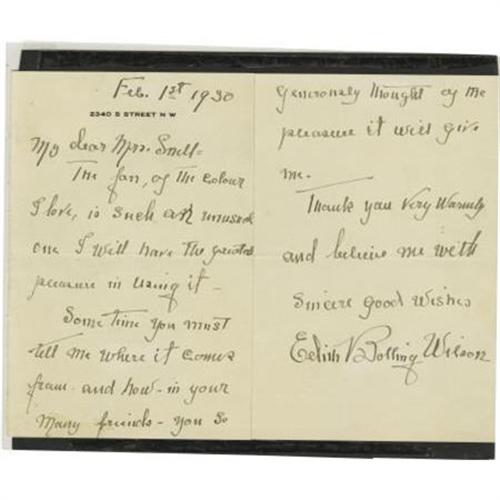 Feb. 1st 1930
2340 S STREET N W
My dear Mrs. Snell-
The fan, of the colour
I love, is such an unusual
one I will have the greatest
pleasure in using it -
Some time you must
tell me where it comes
from - and how - in your
many friends - you so
generously thought of the
pleasure it will give
me.
Thank you very warmly
and believe me with
sincere good wishes
Edith Bolling Wilson